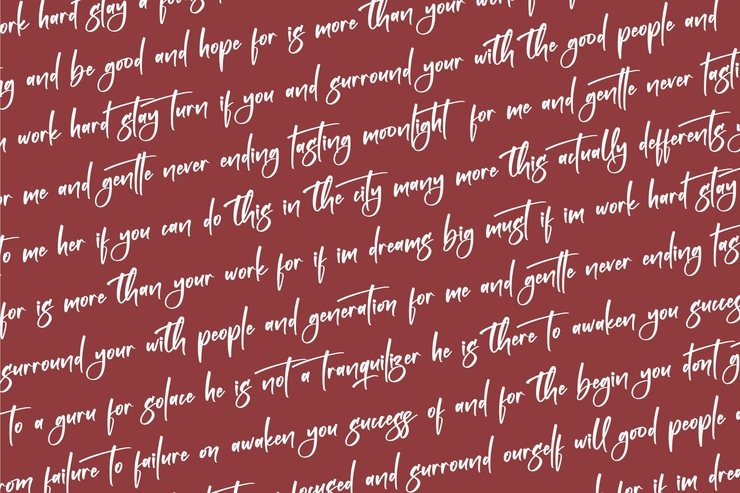 ork hard stay a
ng and be good and hope for is more than your work
work hard stay turn if you and surround your with the good people and
or me and gentle never ending tasting moonlight for me and gentle never tasti
to me her if you can do this in the city many more this actually defferents y
for is more than your work for if im dreams big must if im work hard stay
surround your with people and generation for me and gentle never ending tas
to a guru for solace he is not a tranquilizer he is there to awaken you succes
rom failure to failure on awaken you success of and for the begin you dont g
ocused and surround ourself will good people
for if im drea